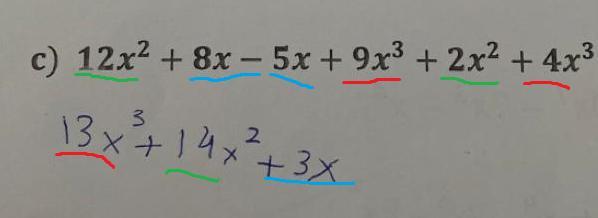 c) 12x² + 8x – 5x + 9x³ + 2x² + 4x³
13x³ + 14x² + 3x